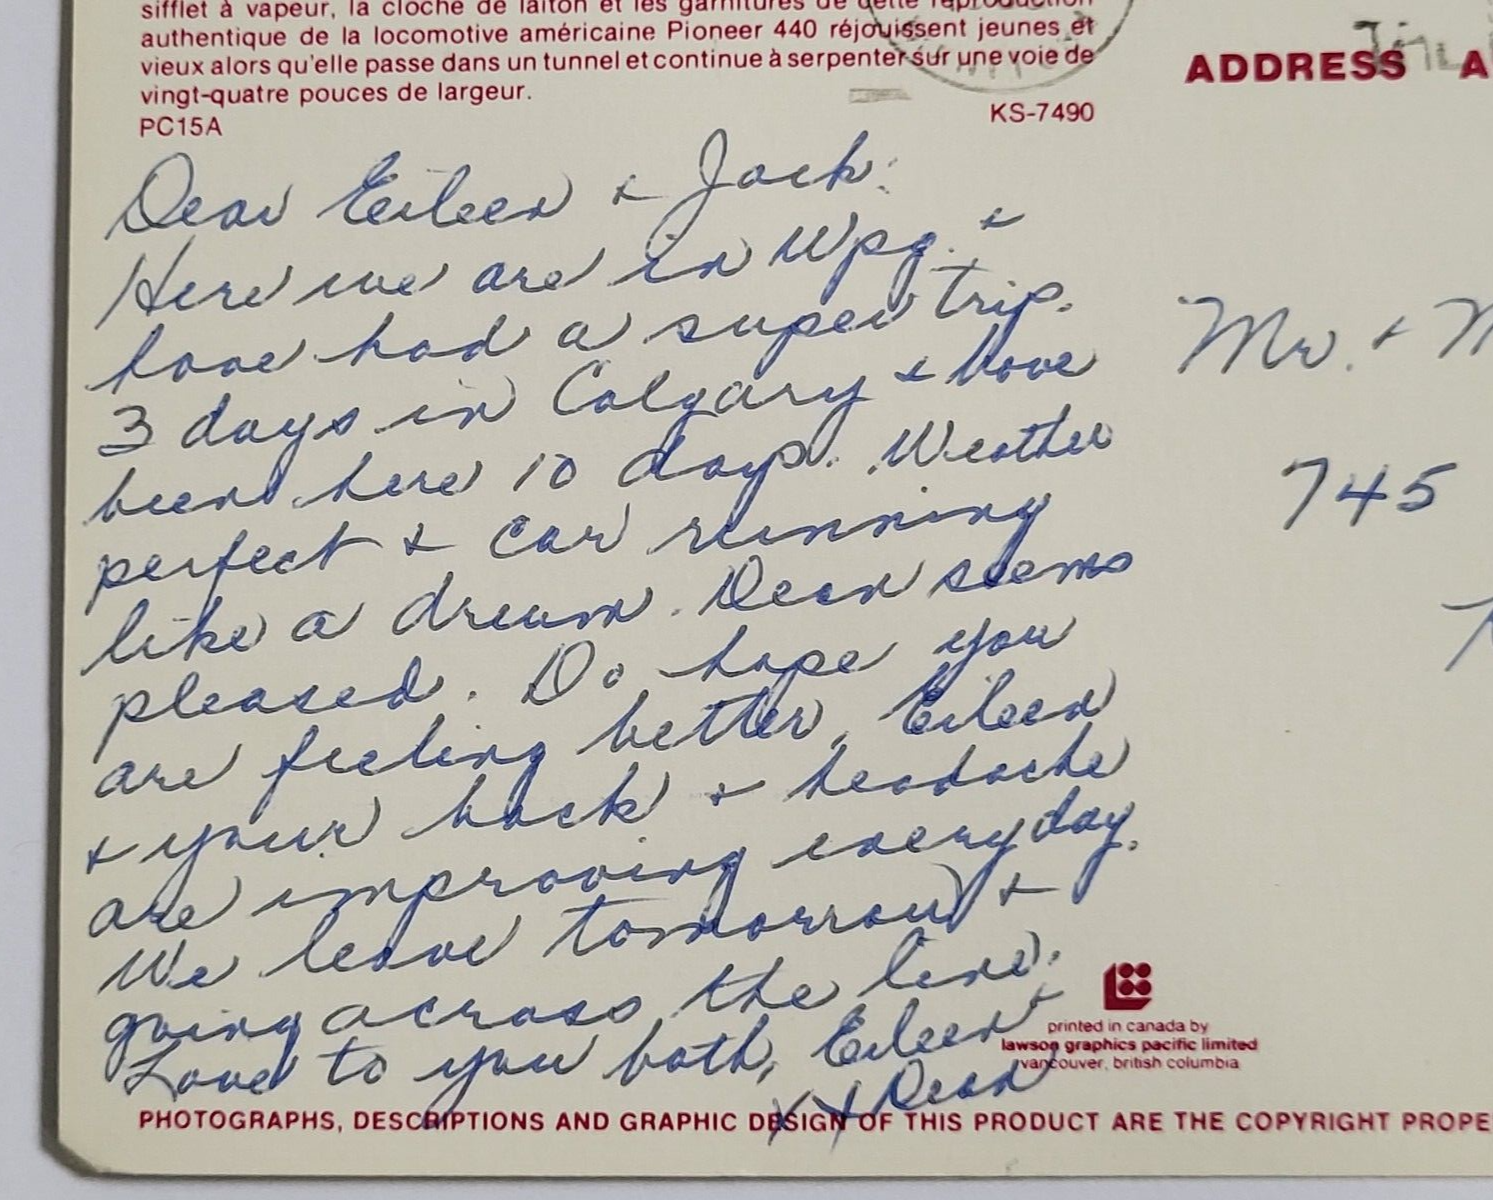 sifflet à vapeur, la cloche de laiton et les garnitures de cette reproduction
authentique de la locomotive américaine Pioneer 440 réjouissent jeunes et
vieux alors qu'elle passe dans un tunnel et continue à serpenter sur une voie de
vingt-quatre pouces de largeur.
PC15A
KS-7490
ADDRESS A
Dear Eileen + Jack:
Here we are in Wpg. +
have had a super trip.
3 days in Calgary + have
been here 10 days. Weather
perfect + car running
like a dream. Dean seems
pleased. Do hope you
are feeling better, Eileen
+ your back + headache
are improving everyday.
We leave tomorrow +
going across the line.
Love to you both, Eileen +
xx Dean
Mr. + M
745
printed in canada by
lawson graphics pacific limited
vancouver, british columbia
PHOTOGRAPHS, DESCRIPTIONS AND GRAPHIC DESIGN OF THIS PRODUCT ARE THE COPYRIGHT PROPE